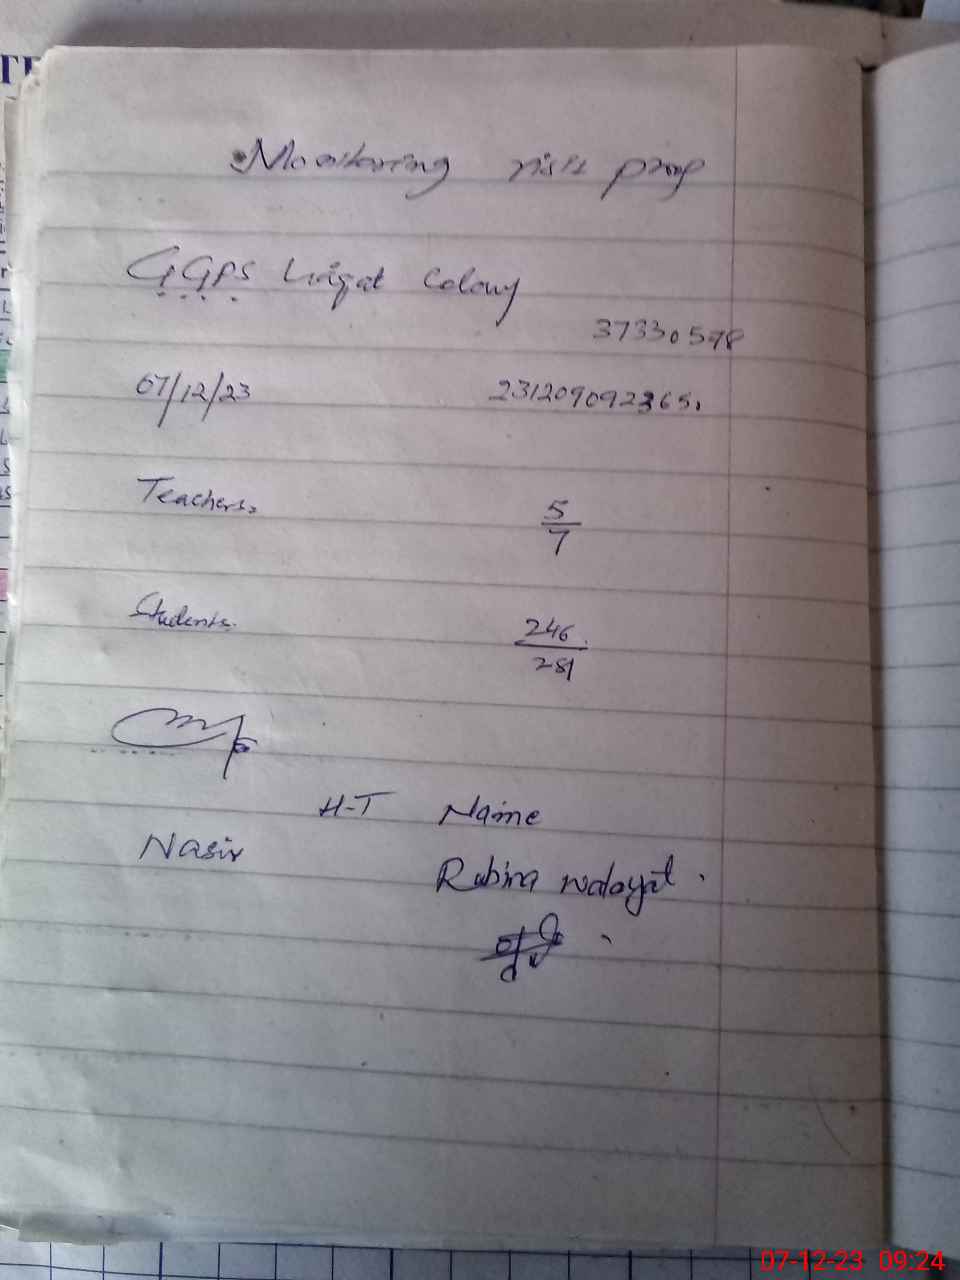 Monitoring visit proof
GGPS Liaqat Colony
37330578
07/12/23
231209092365
Teachers.
5/7
Students.
246/281
H-T Name
Nasir
Rubina walayat.
07-12-23 09:24